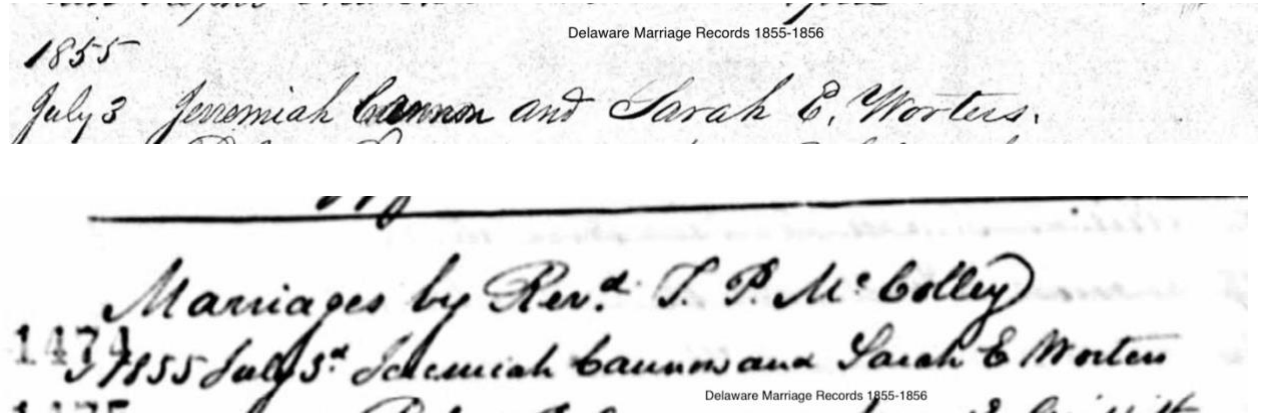 Delaware Marriage Records 1855-1856
1855
July 3 Jeremiah Cannon and Sarah E. Worters.
Marriages by Revd. T. P. Mc Colley
1474 1855 July 3d Jeremiah Cannon and Sarah E Worters
Delaware Marriage Records 1855-1856